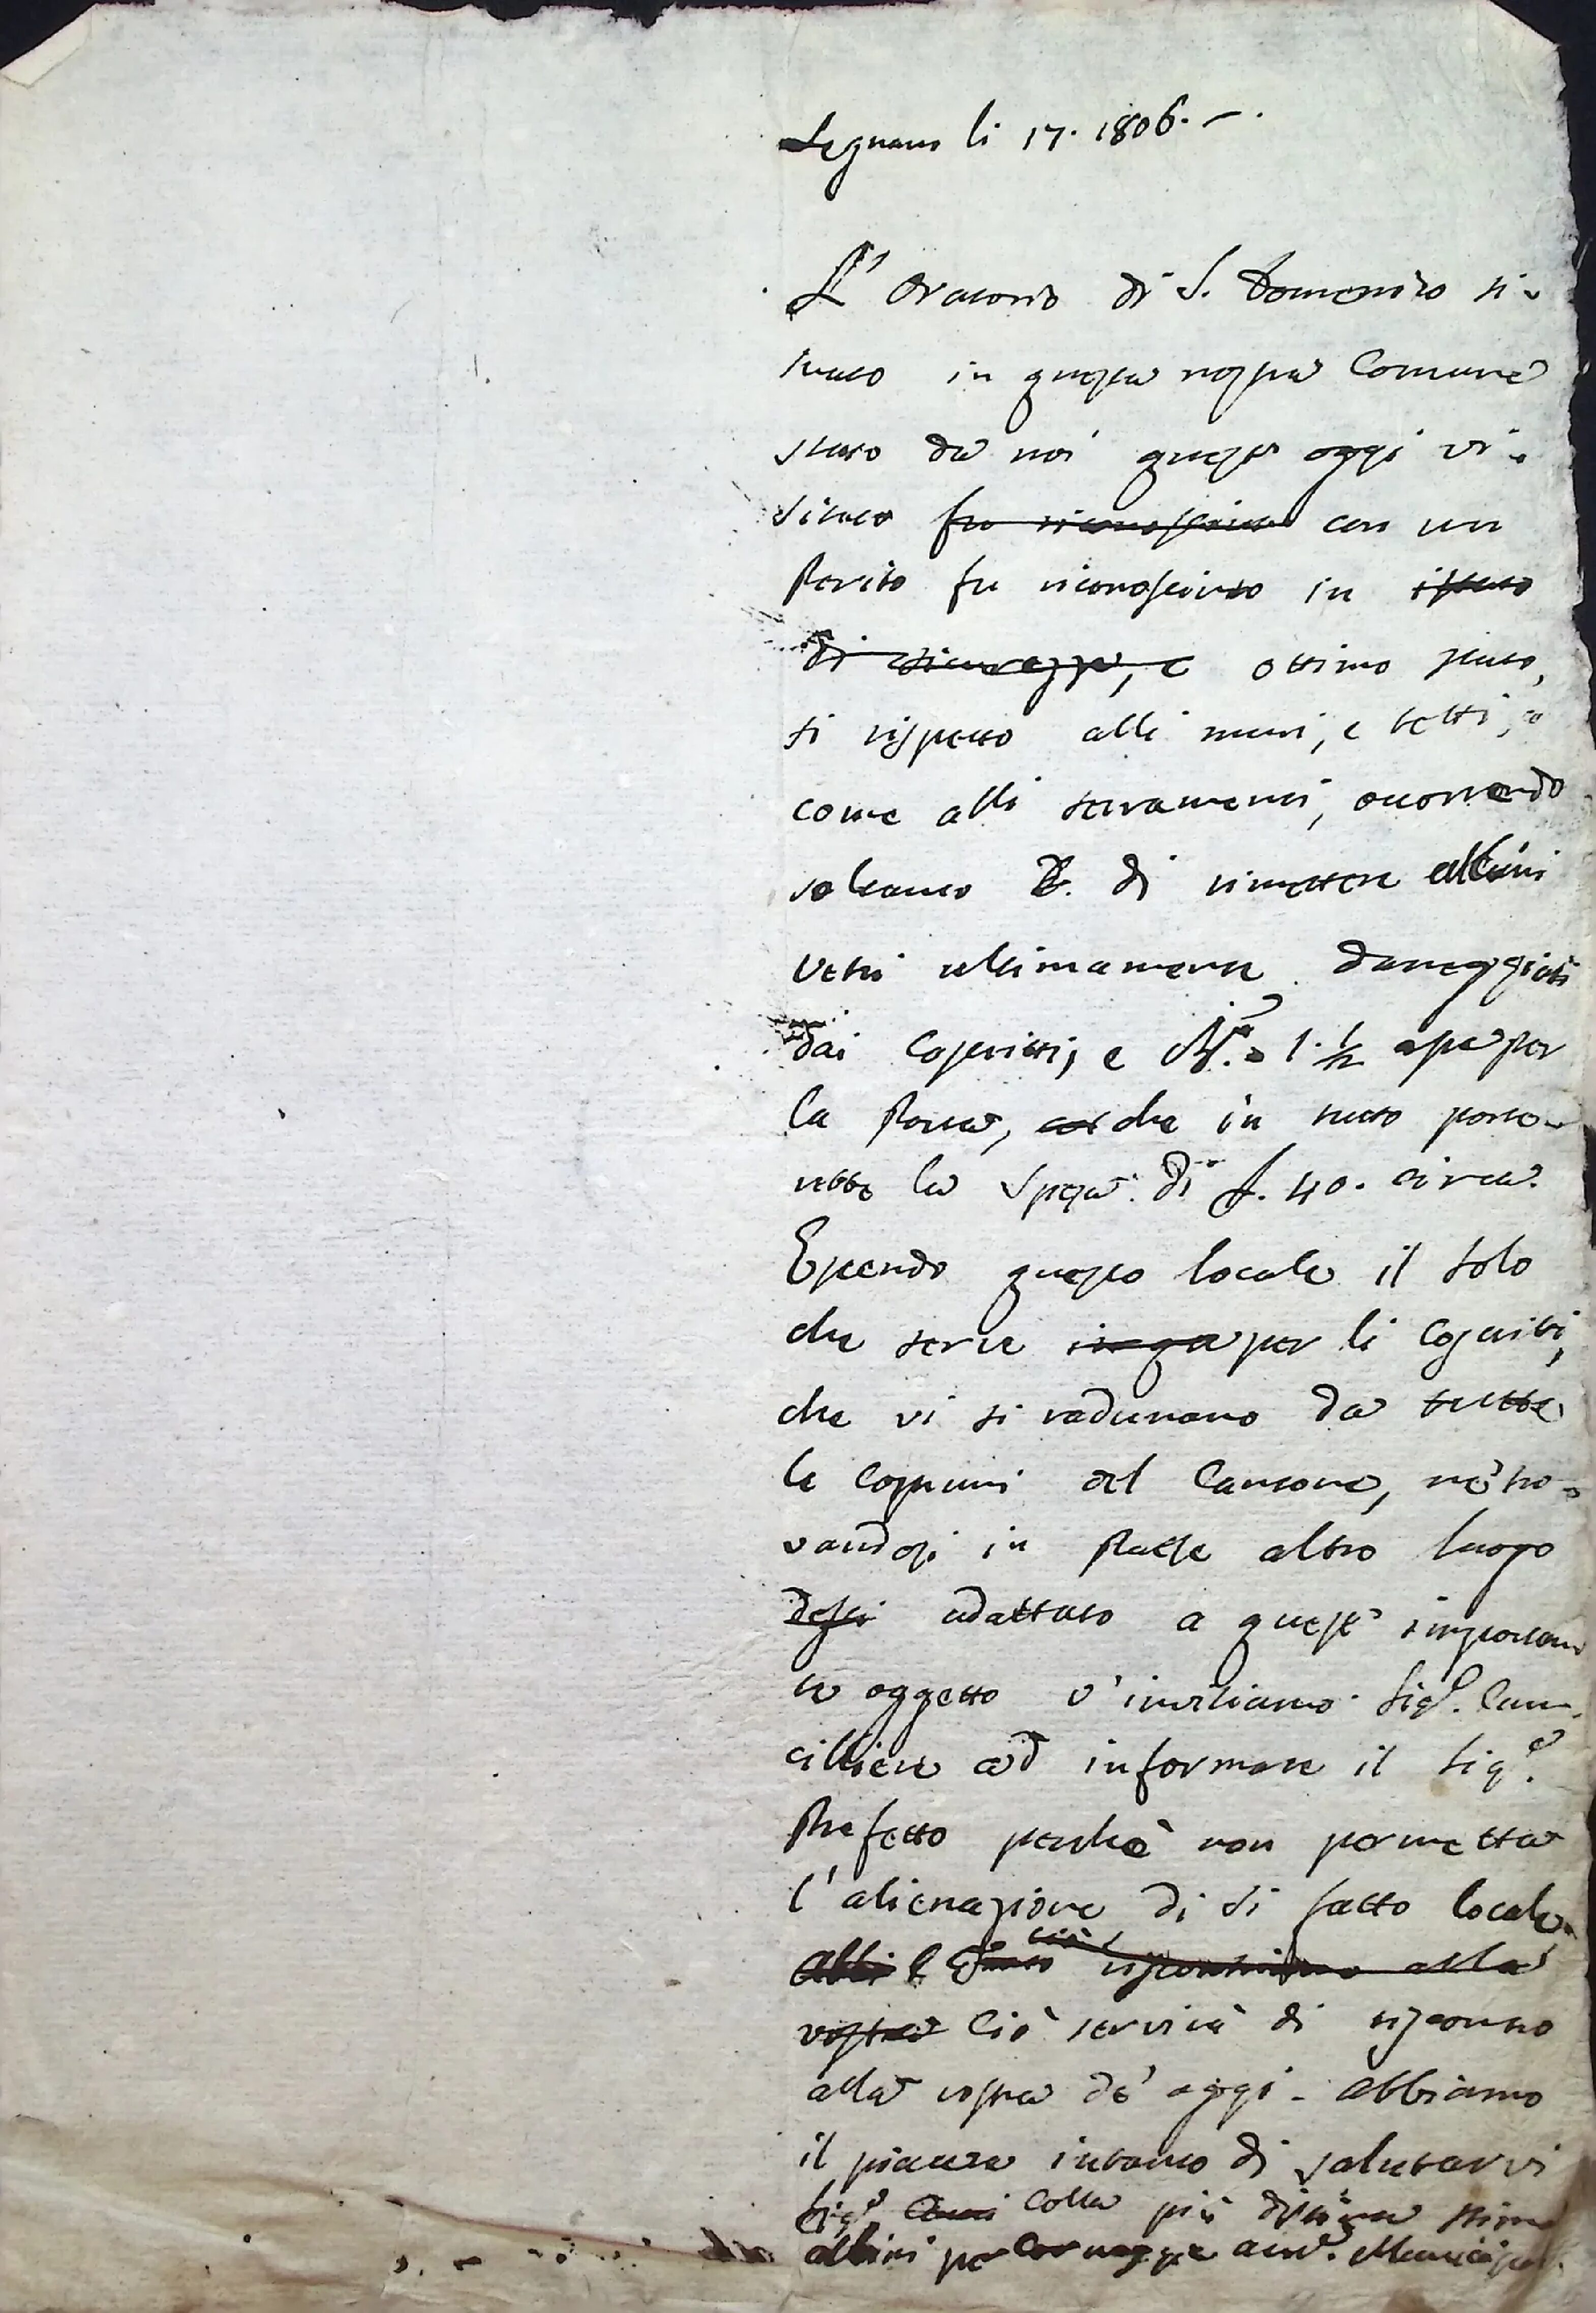 Legnano li 17. 1806.
L'Oratorio di S. Domenico si-
tuato in questa nostra Comune
stato da noi quest'oggi vi-
sitato fu riconosciuto con un
Perito fu riconosciuto in istato
di sicurezza, e ottimo stato,
si rispetto alli muri, e tetti,
come alli serramenti, occorrendo
soltanto di rimettere alcuni
vetri ultimamente daneggiati
dai Coscritti, e 1. 1/2 asse per
la Porta, che in tutto porte-
rebbe la spesa di L. 40. circa.
Essendo questo locale il solo
che serve per li Coscritti,
che vi si radunano da tutte
le Comuni del Cantone, nè tro-
vandosi in Paese altro luogo
adattato a quest' importan
te oggetto v'invitiamo Sig.r Can-
cilliere ad informare il Sig.e
Prefetto perchè non permetta
l'alienazione di si fatto locale.
riscontriamo alla
vostra Ciò servirà di riscontro
alla vostra d'oggi - abbiamo
il piacere intanto di salutarvi
Sig.r colla più distinta stima
Albini per Cornaggia Municipa